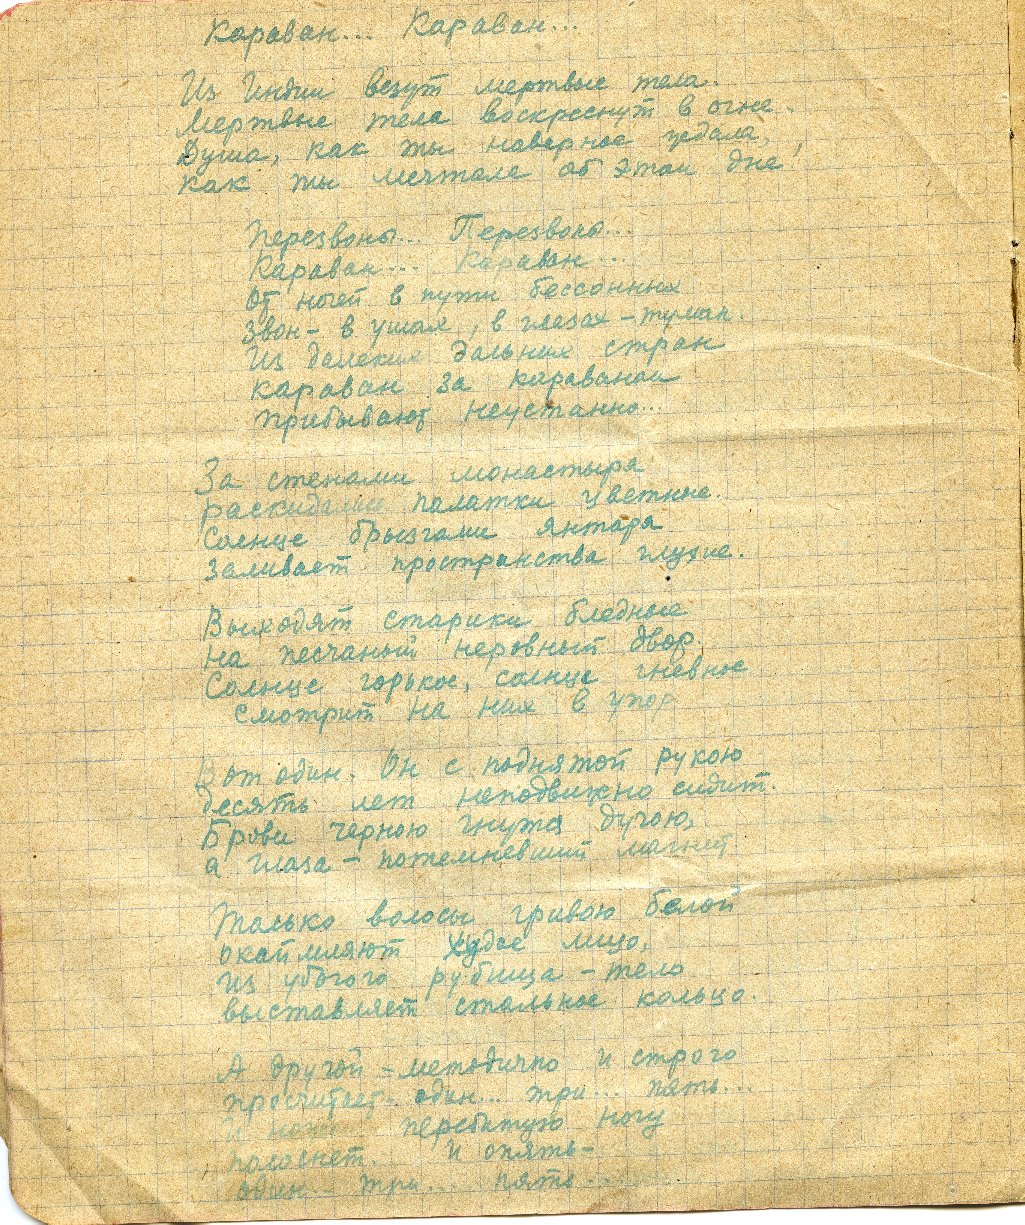 Караван... Караван...
Из Индии везут мертвые тела.
Мертвые тела воскреснут в огне.
Душа, как ты наверное ждала,
как ты мечтала об этом дне!
Перезвоны... Перезвоны...
Караван... Караван...
От ночей в пути бессонных
Звон - в ушах, в глазах - туман.
Из далеких дальних стран
караван за караваном
прибывают неустанно...
За стенами монастыря
раскидали палатки цветные.
Солнце брызгами янтаря
заливает пространства глухие.
Выходят старики бледные
на песчаный неровный двор.
Солнце горькое, солнце гневное
смотрит на них в упор
Вот один. Он с поднятой рукою
десять лет неподвижно сидит.
Брови черною гнутся дугою,
а глаза - потемневший магнит
Только волосы гривою белой
окаймляют худое лицо,
из убогого рубища - тело
выставляет стальное кольцо.
А другой - методично и строго
просчитает один... три... пять...
и перебитую ногу
и опять -
один... три... пять...